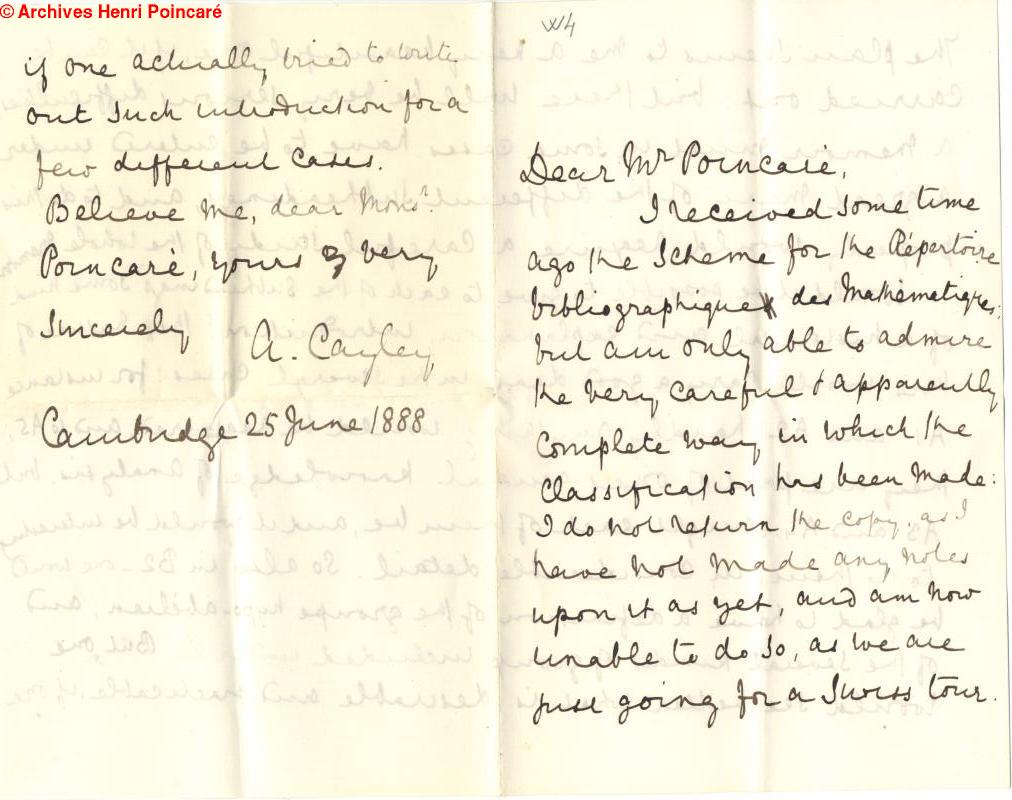 © Archives Henri Poincaré
W4
Dear Mr Poincaré,
I received some time
ago the Scheme for the Répertoire
bibliographique des Mathématiques;
but am only able to admire
the very careful & apparently
complete way in which the
classification has been made:
I do not return the copy, as I
have not made any notes
upon it as yet, and am now
unable to do so, as we are
just going for a Swiss tour.
if one actually tried to write
out such introduction for a
few different cases.
Believe me, dear Monsr
Poincaré, yours very
sincerely
A. Cayley
Cambridge 25 June 1888